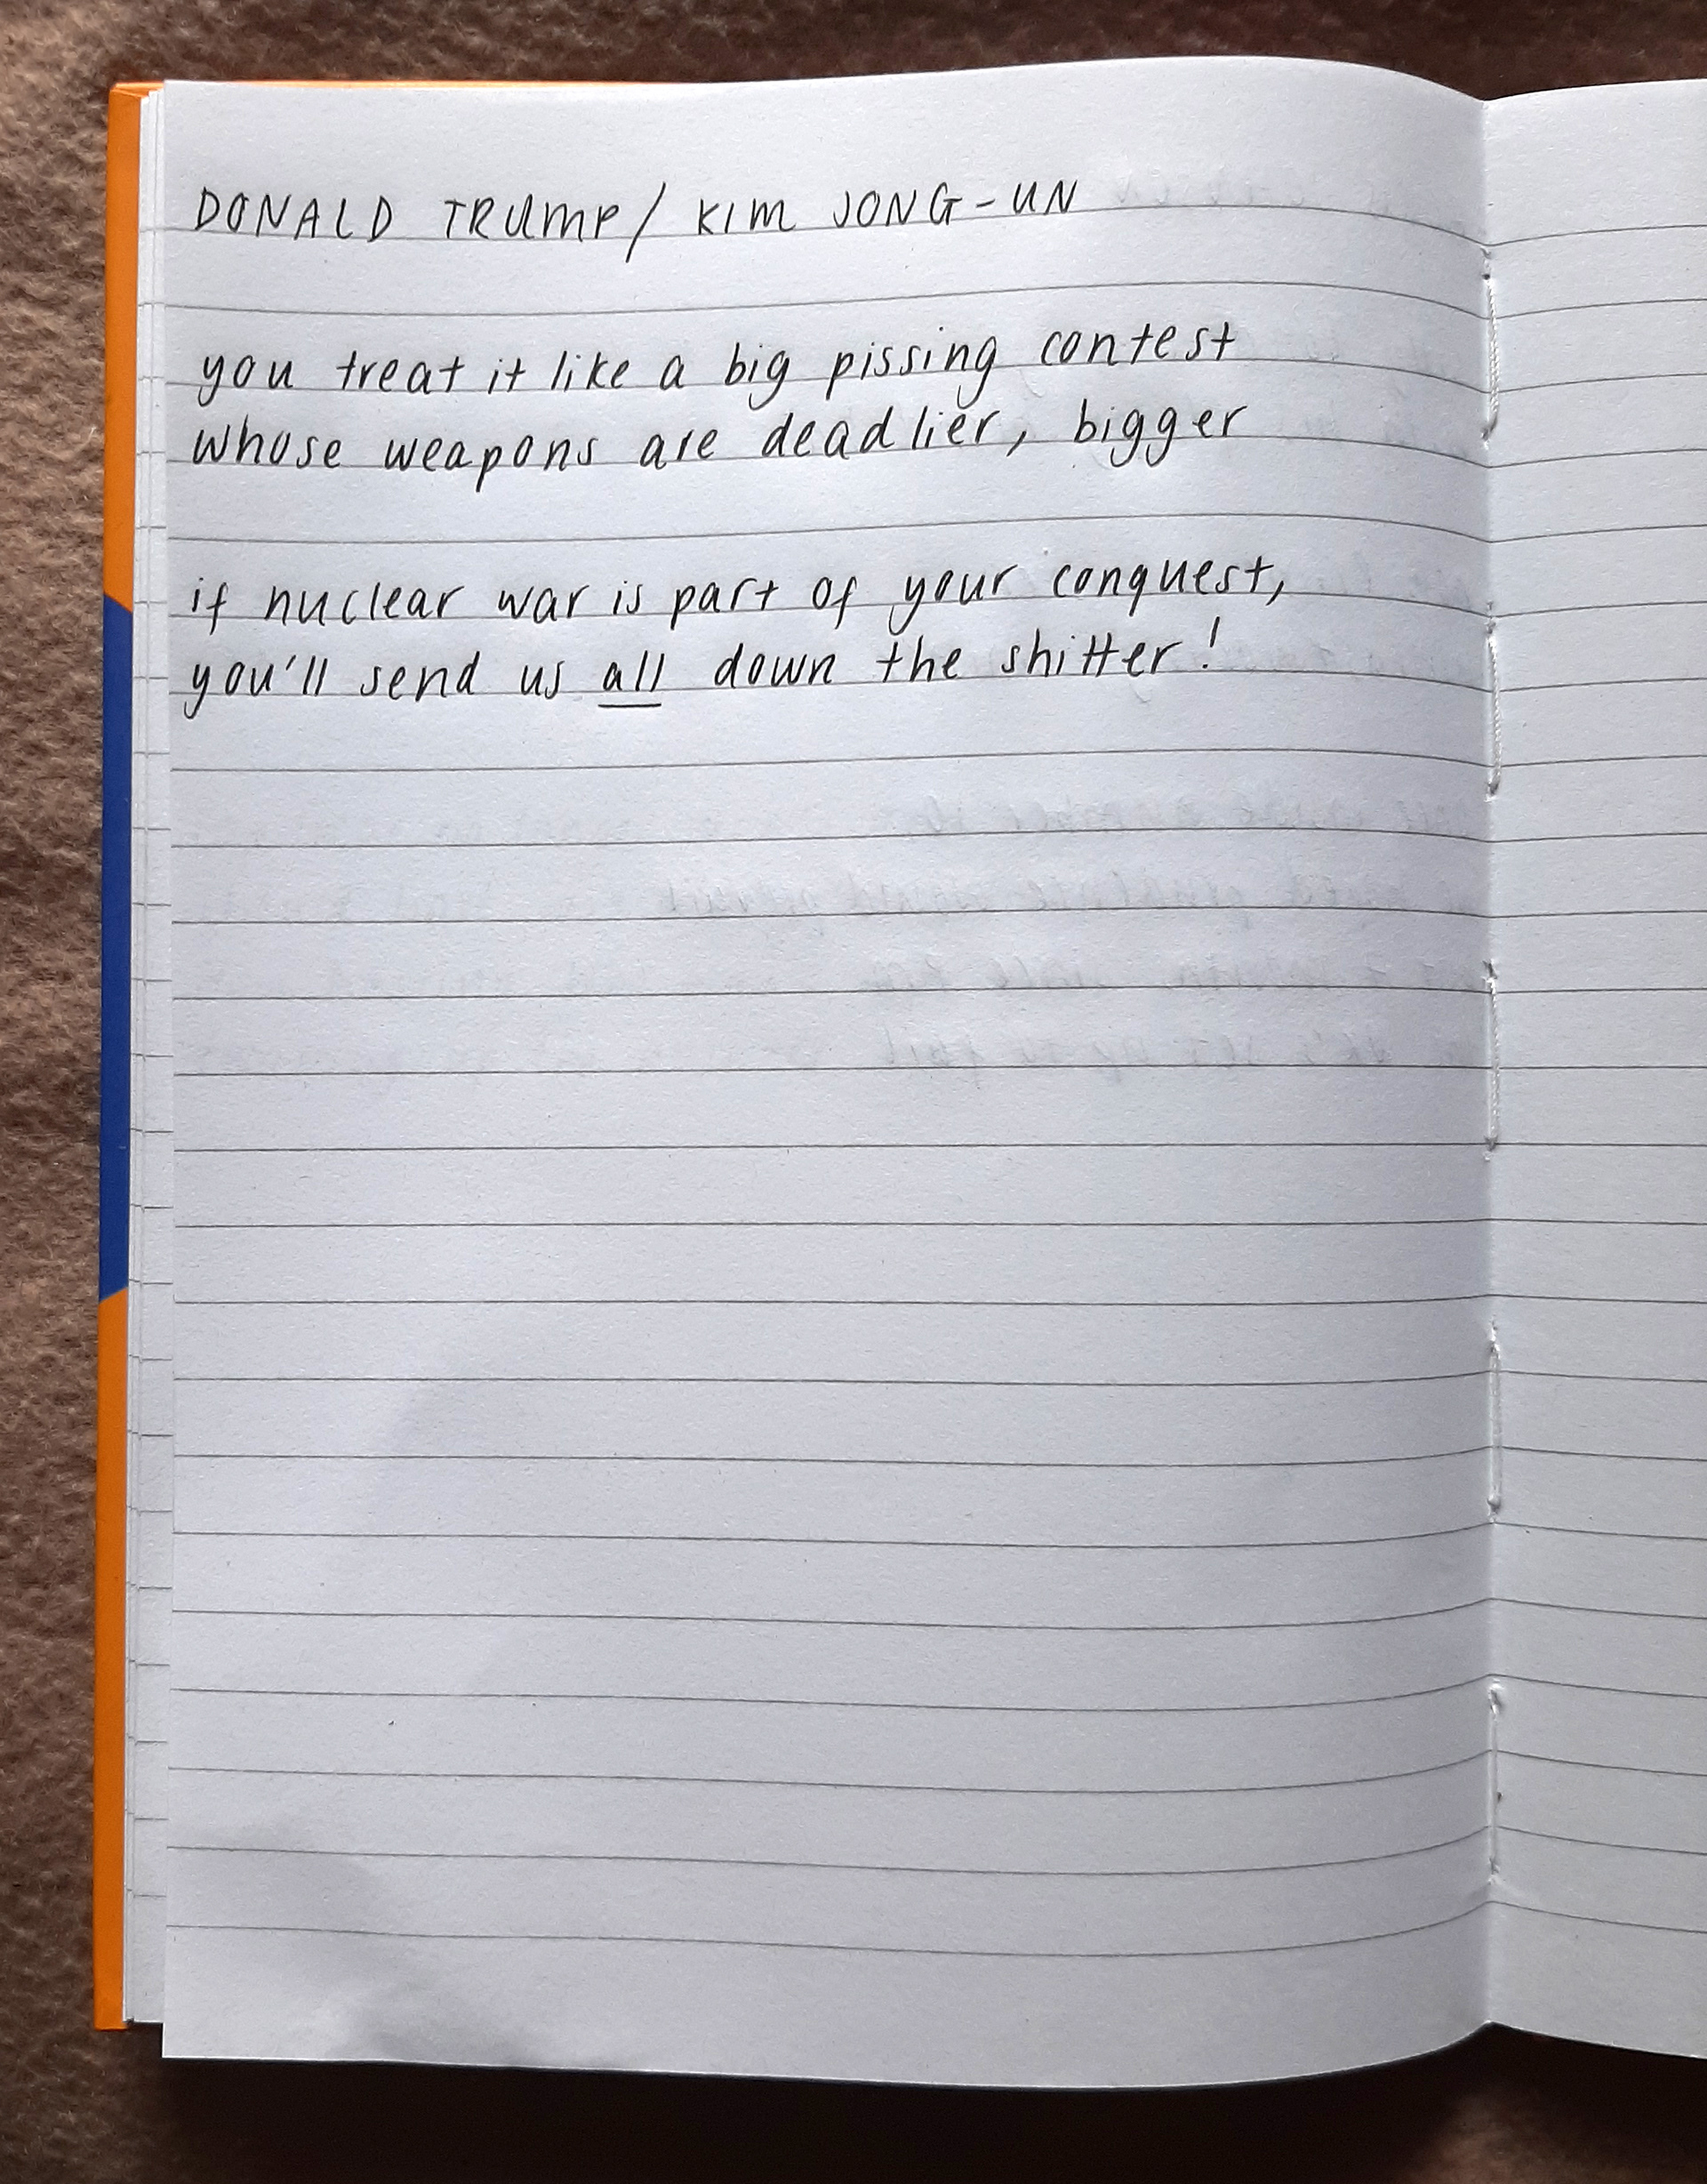 DONALD TRUMP / KIM JONG-UN
you treat it like a big pissing contest
whose weapons are deadlier, bigger
if nuclear war is part of your conquest,
you'll send us all down the shitter!